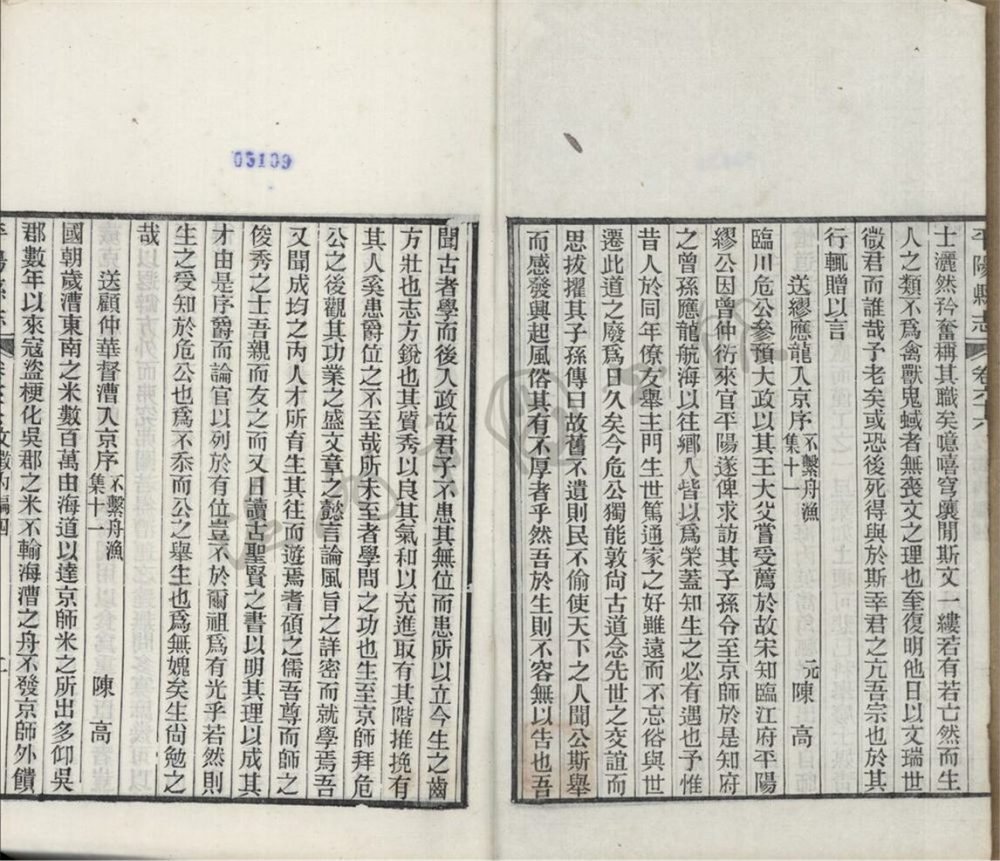 平陽縣志 卷六六
士灑然矜奮稱其職矣噫嘻穹壤閒斯文一縷若有若亡然而生
人之類不爲禽獸鬼蜮者無喪文之理也奎復明他日以文瑞世
微君而誰哉予老矣或恐後死得與於斯幸君之亢吾宗也於其
行輒贈以言
送繆應龍入京序 不繫舟漁集十一 元陳 高
臨川危公參預大政以其王大父嘗受薦於故宋知臨江府平陽
繆公因曾仲衍來官平陽遂俾求訪其子孫令至京師於是知府
之曾孫應龍航海以往鄉人皆以爲榮蓋知生之必有遇也予惟
昔人於同年僚友舉主門生世篤通家之好雖遠而不忘俗與世
遷此道之廢爲日久矣今危公獨能敦尙古道念先世之交誼而
思拔擢其子孫傳曰故舊不遺則民不偷使天下之人聞公斯舉
而感發興起風俗其有不厚者乎然吾於生則不容無以告也吾
聞古者學而後入政故君子不患其無位而患所以立今生之齒
方壯也志方銳也其質秀以良其氣和以充進取有其階推挽有
其人奚患爵位之不至哉所未至者學問之功也生至京師拜危
公之後觀其功業之盛文章之懿言論風旨之詳密而就學焉吾
又聞成均之內人才所育生其往而遊焉耆碩之儒吾尊而師之
俊秀之士吾親而友之而又日讀古聖賢之書以明其理以成其
才由是序爵而論官以列於有位豈不於爾祖爲有光乎若然則
生之受知於危公也爲不忝而公之舉生也爲無媿矣生尙勉之
哉
送顧仲華督漕入京序 不繫舟漁集十一 陳 高
國朝歲漕東南之米數百萬由海道以達京師米之所出多仰吳
郡數年以來寇盜梗化吳郡之米不輸海漕之舟不發京師外饋
05109